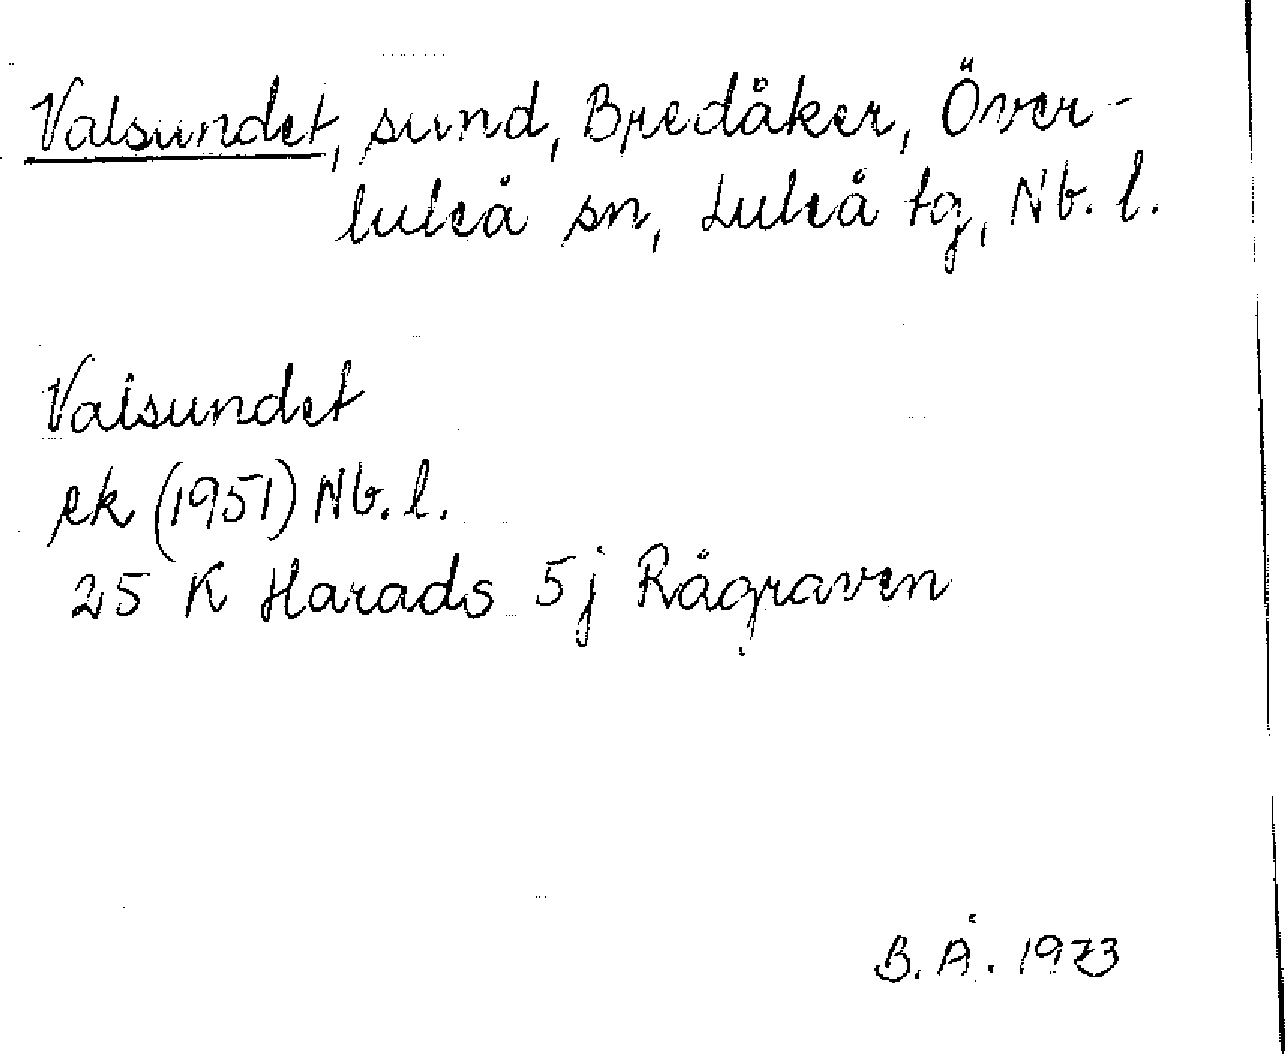 Valsundet, sund, Bredåker, Över-
luleå sn, Luleå tg, Nb. l.
Valsundet
ek (1951) Nb. l.
25 K Harads 5j Rågraven
B. Å. 1973